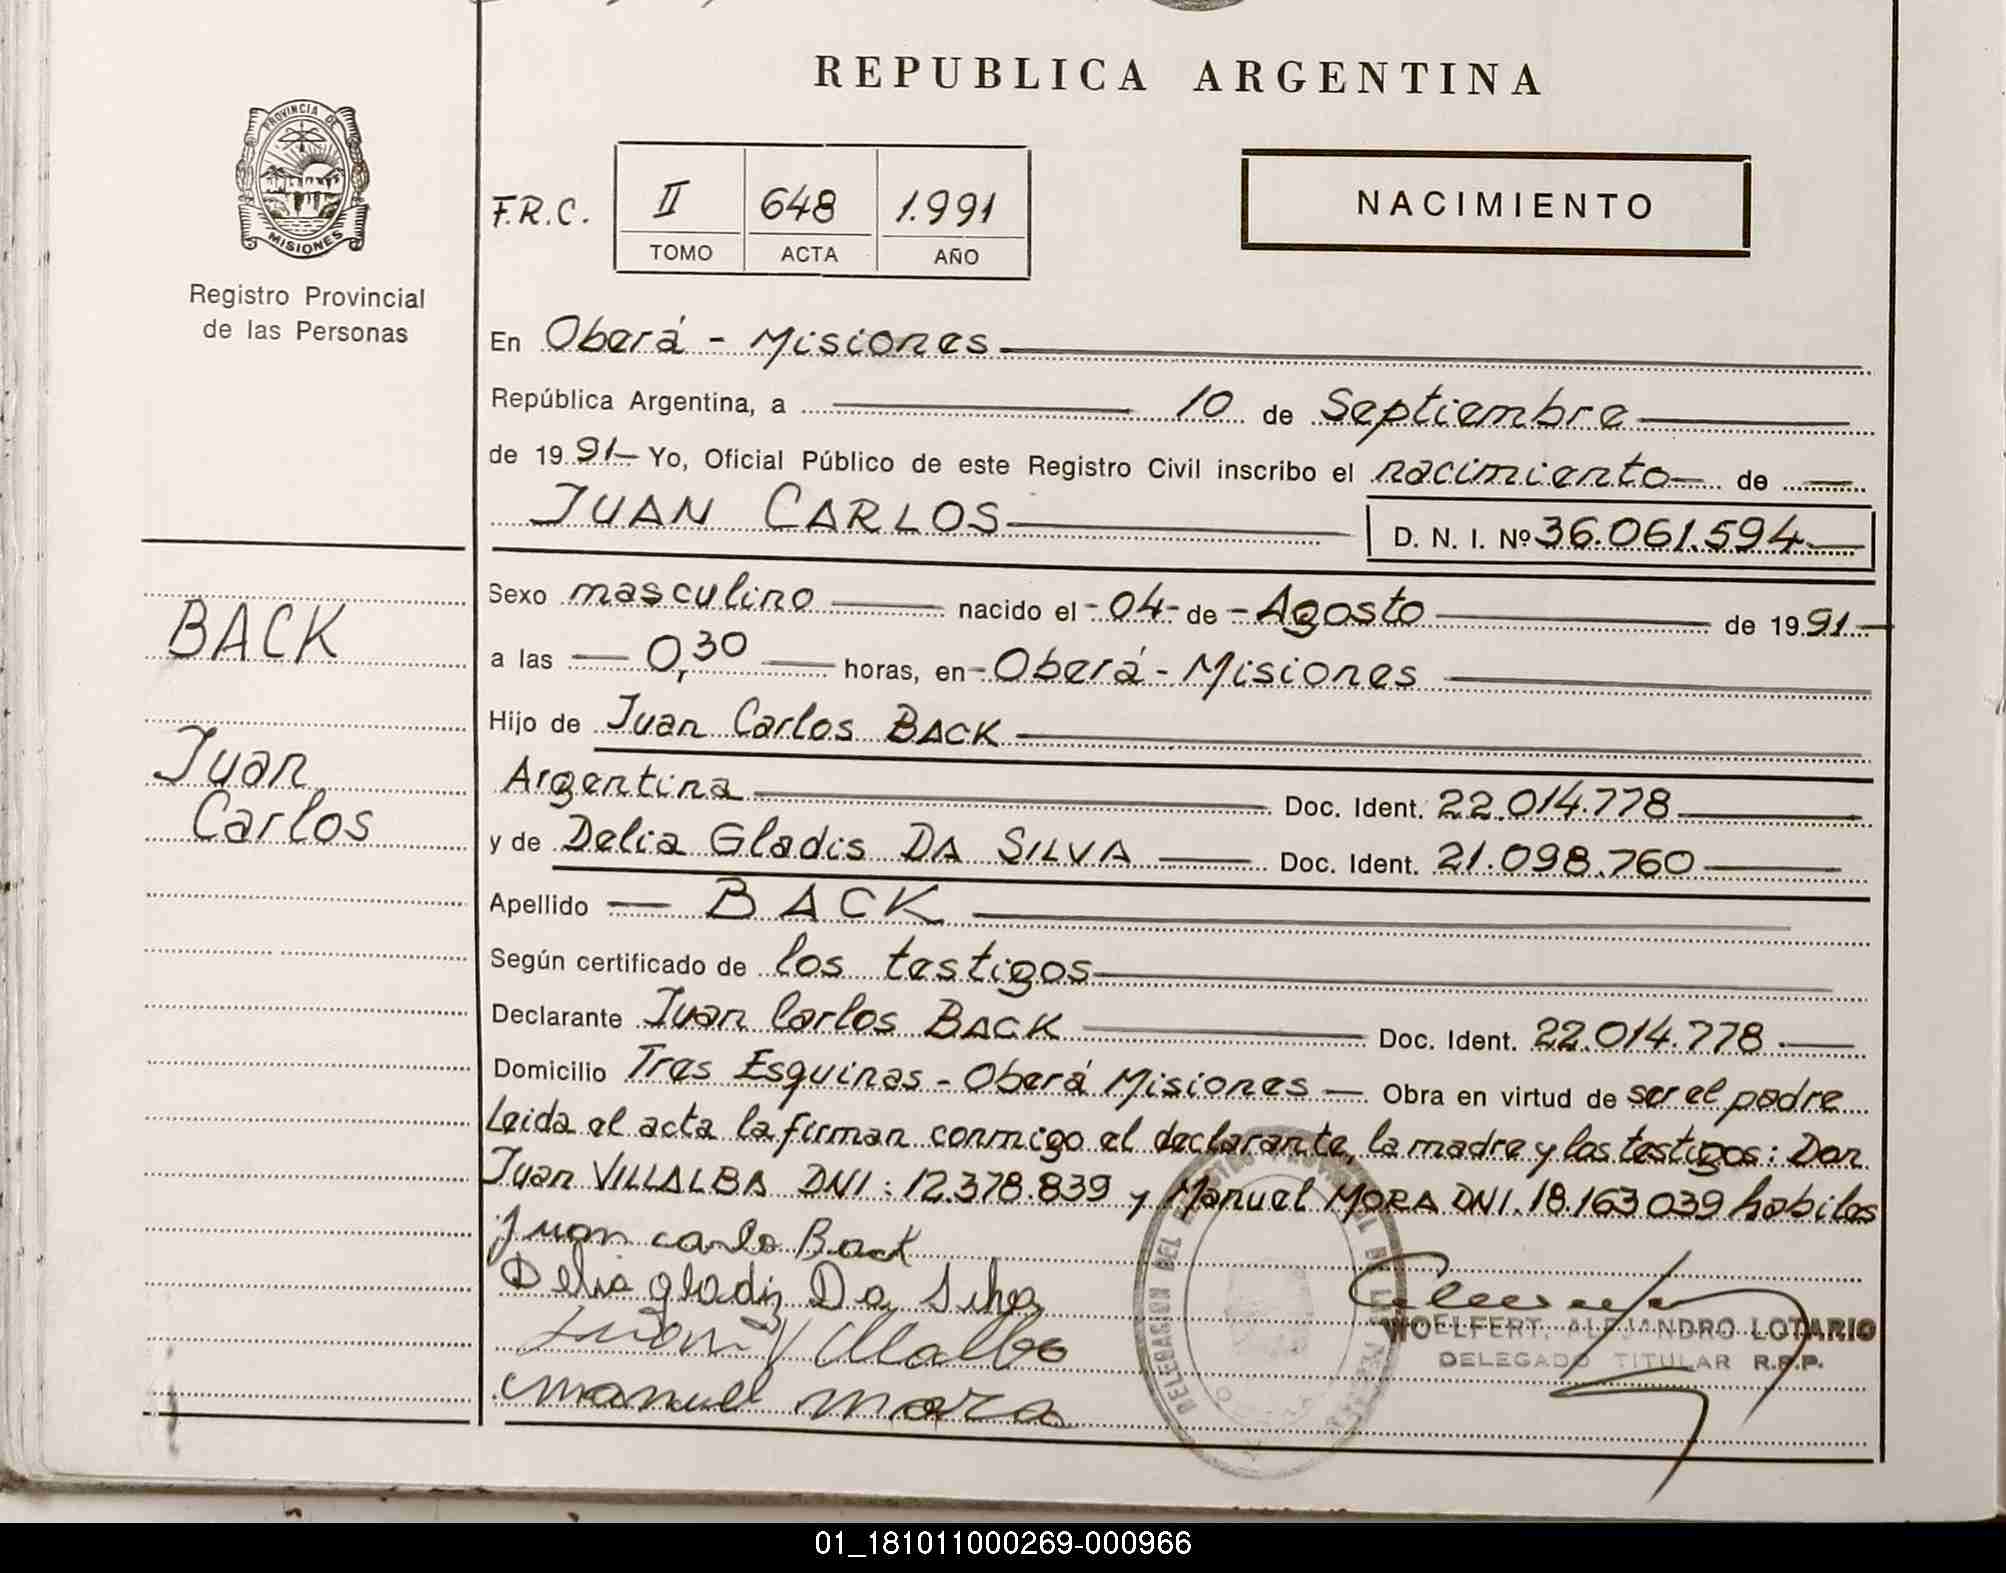 REPUBLICA ARGENTINA
PROVINCIA DE MISIONES
Registro Provincial
de las Personas
F.R.C. II 648 1.991
TOMO ACTA AÑO
NACIMIENTO
En Oberá - Misiones
República Argentina, a 10 de Septiembre
de 1991 Yo, Oficial Público de este Registro Civil inscribo el nacimiento de
JUAN CARLOS D. N. I. Nº 36.061.594
BACK
Juan
Carlos
Sexo masculino nacido el - 04 - de - Agosto de 1991
a las 0,30 horas, en - Oberá - Misiones
Hijo de Juan Carlos BACK
Argentina Doc. Ident. 22.014.778
y de Delia Gladis DA SILVA Doc. Ident. 21.098.760
Apellido BACK
Según certificado de los testigos
Declarante Juan Carlos BACK Doc. Ident. 22.014.778
Domicilio Tres Esquinas - Oberá Misiones Obra en virtud de ser el padre
Leida el acta la firman conmigo el declarante, la madre y los testigos: Don
Juan VILLALBA DNI: 12.378.839 y Manuel MORA DNI. 18.163039 habiles
Juan carlo Back
Delia gladiz Da Silva
Juan Villalba
manuel mora
WOELFERT, ALEJANDRO LOTARIO
DELEGADO TITULAR R.P.P.
01_181011000269-000966